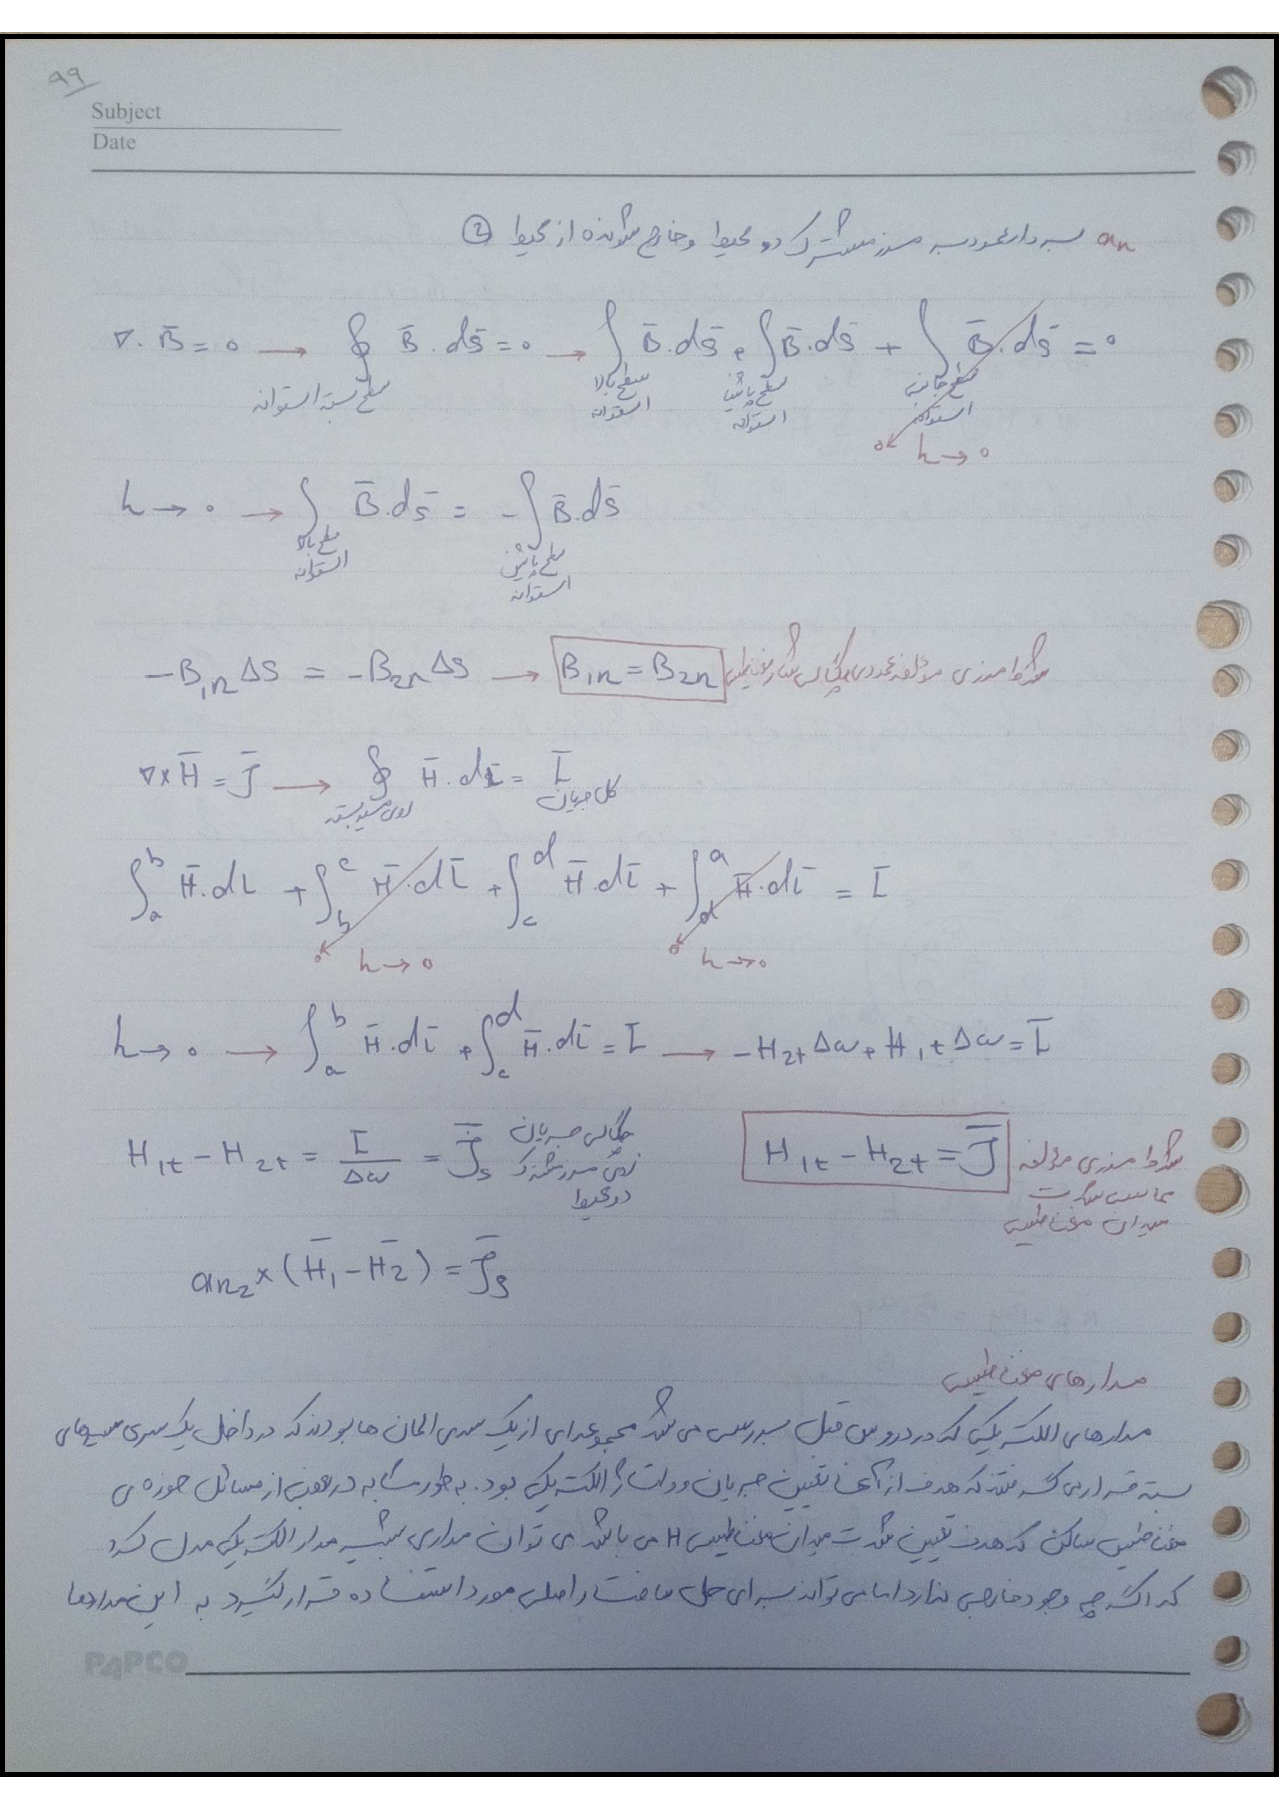 ۹۹
Subject
Date
an بردار عمود بر مرز مشترک دو محیط و خارج شونده از محیط ②
∇. B̄ = 0 → ∮ B̄ . ds̄ = 0 → ∫ B̄ . ds̄ + ∫ B̄ . ds̄ + ∫ B̄ . ds̄ = 0
سطح بسته استوانه سطح بالا استوانه سطح پائین استوانه سطح جانبی استوانه
0 h → 0
h → 0 → ∫ B̄ . ds̄ = - ∫ B̄ . ds̄
سطح بالا استوانه سطح پائین استوانه
-B1n ΔS = -B2n ΔS → B1n = B2n شرط مرزی مؤلفه عمودی چگالی شار مغناطیسی
∇ × H̄ = J̄ → ∮ H̄ . dL̄ = Ī
روی مسیر بسته کل جریان
∫_a^b H̄ . dL + ∫_b^c H̄ . dL̄ + ∫_c^d H̄ . dL̄ + ∫_d^a H̄ . dL̄ = I
0 h → 0 0 h → 0
h → 0 → ∫_a^b H̄ . dL̄ + ∫_c^d H̄ . dL̄ = I → -H2t Δw + H1t Δw = Ī
H1t - H2t = I/Δw = J̄s چگالی جریان روی مرز مشترک دو محیط
H1t - H2t = J̄ شرط مرزی مؤلفه مماسی شدت میدان مغناطیسی
an2 × (H̄1 - H̄2) = J̄s
مدارهای مغناطیسی
مدارهای الکتریکی که در دروس قبل بررسی می شد مجموعه ای از یک سری المان ها بودند که در داخل یک سری مسیرهای
بسته قرار می گرفتند که هدف از آنها تعیین جریان و ولتاژ الکتریکی بود. به طور مشابه در بعضی از مسائل حوزه ی
مغناطیس ساکن که هدف تعیین شدت میدان مغناطیسی H می باشد می توان مداری شبیه مدار الکتریکی مدل کرد
که اگر چه وجود خارجی ندارد اما می تواند برای حل ساختار اصلی مورد استفاده قرار گیرد به این مدارها
PAPCO